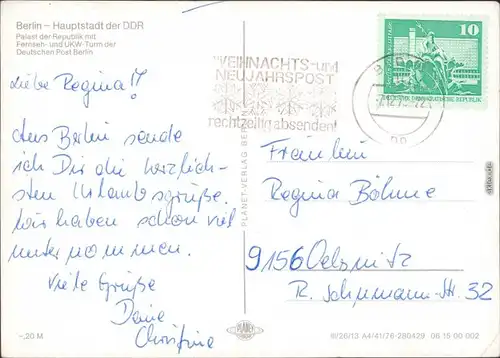 Berlin – Hauptstadt der DDR
Palast der Republik mit
Fernseh- und UKW-Turm der
Deutschen Post Berlin
WEIHNACHTS- und
NEUJAHRSPOST
rechtzeitig absenden!
10
DEUTSCHE DEMOKRATISCHE REPUBLIK
Liebe Regina!
Aus Berlin sende
ich Dir die herzlich-
sten Urlaubsgrüße.
Wir haben schon viel
unternommen.
Viele Grüße
Deine
Christine
PLANET-VERLAG BERLIN
Fräulein
Regina Böhme
9156 Oelsnitz
R. Schumann-Str. 32
–,20 M
PLANET
III/26/13 A4/41/76-280429 06 15 00 002